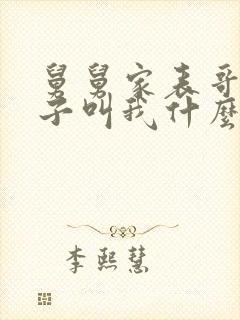 舅舅家表哥
子叫我什麼
李熙慧